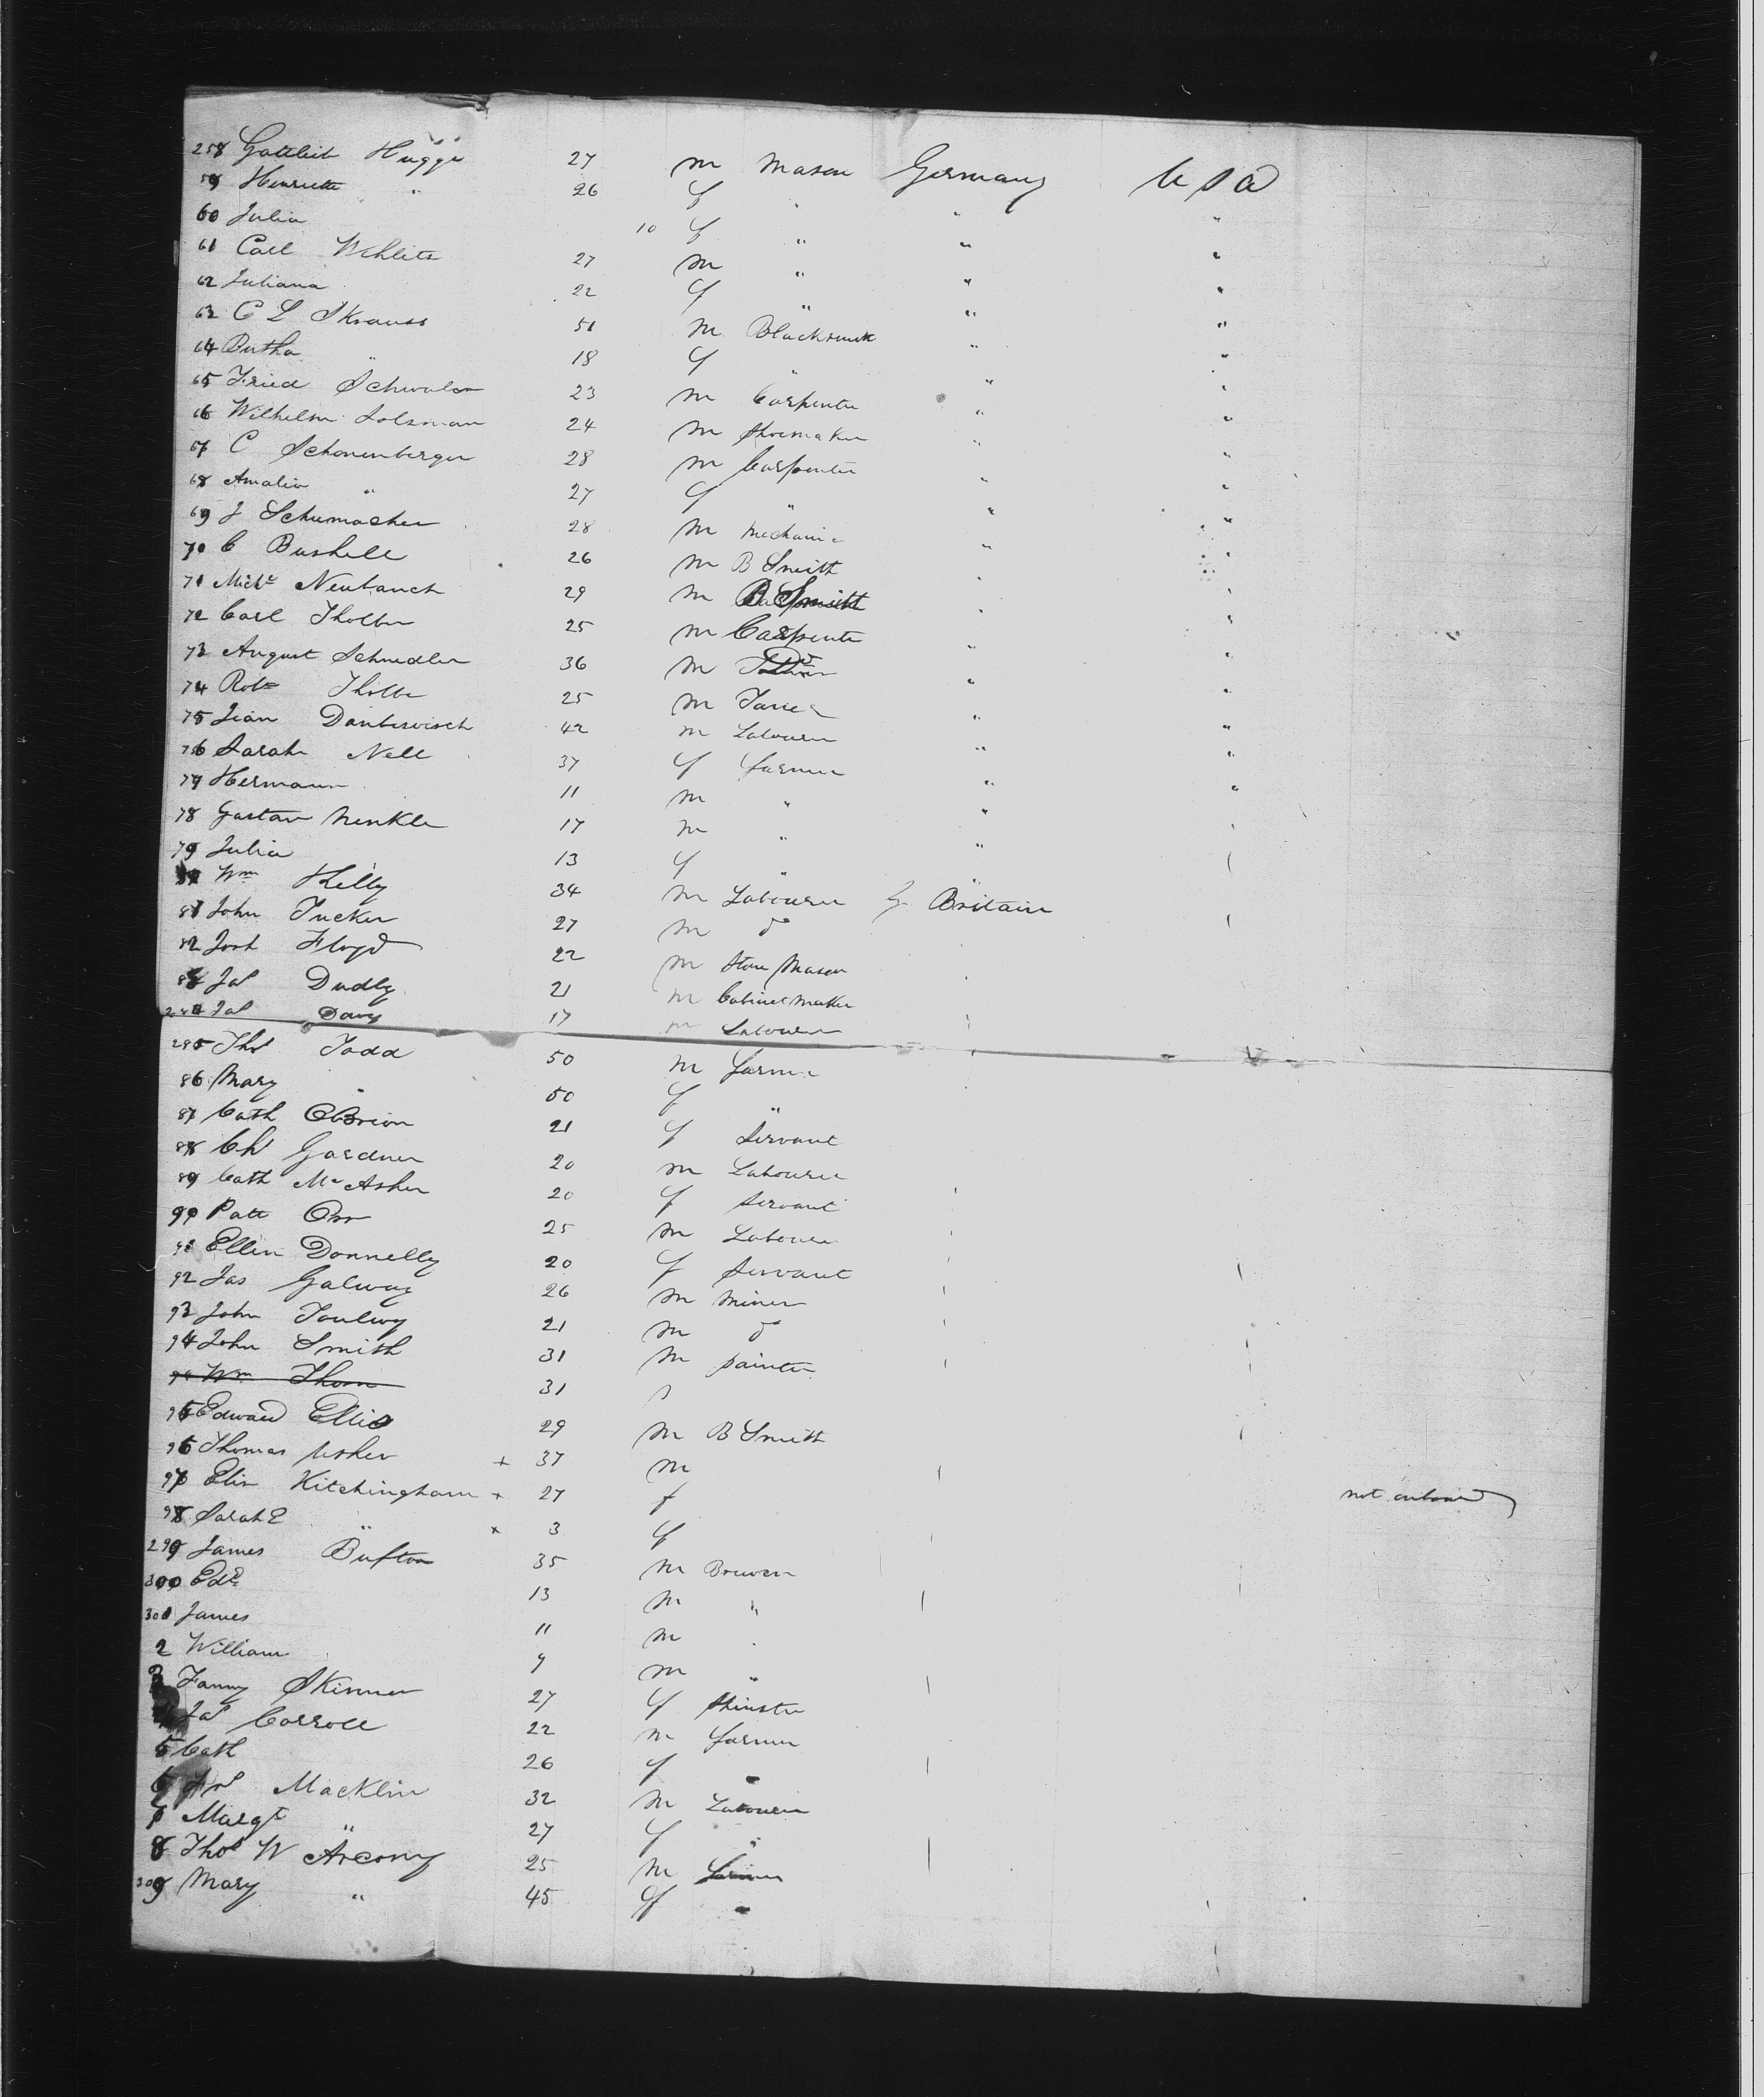 258 Gottlieb Hugge 27 m Mason Germany U S A
59 Henriette " 26 f " " "
60 Julia 10 f " " "
61 Carl Wehlitz 27 m " " "
62 Juliana 22 f " " "
63 C L Strauss 51 m Blacksmith " "
64 Bertha " 18 f " " "
65 Fried Schwalm 23 m Carpenter " "
66 Wilhelm Solsman 24 m Shoemaker " "
67 C Schonenberger 28 m Carpenter " "
68 Amalia " 27 f " " "
69 J Schumacher 28 m Mechanic " "
70 C Bushell 26 m B Smith " "
71 Michl Neubauch 29 m B Smith " "
72 Carl Tholbe 25 m Carpenter " "
73 August Schnedler 36 m " "
74 Robt Tholbe 25 m " "
75 Jean Dauberwisch 42 m Labourer " "
76 Sarah Nell 37 f farmer " "
77 Hermann 11 m " " "
78 Gustav Menkle 17 m " "
79 Julia 13 f " "
80 Wm Kelly 34 m Labourer G Britain
81 John Tucker 27 m do
82 Josh Floyd 22 m Stone Mason
83 Jas Dudly 21 m Cabinet Maker
284 Jas Davy 17 m Labourer
285 Thos Todd 50 m farmer
86 Mary " 50 f "
87 Cath OBrien 21 f Servant
88 Chs Gardner 20 m Labourer
89 Cath McAsher 20 f Servant
90 Patt Orr 25 m Labourer
91 Ellen Donnelly 20 f Servant
92 Jas Galway 26 m Miner
93 John 21 m do
94 John Smith 31 m painter
Wm Thom 31
95 Edward Ellis 29 m B Smith
96 Thomas Usher + 37 m
97 Eliz Kitchingham + 27 f not onboard
98 Sarah E " x 3 f
299 James Bufton 35 m Brewer
300 Edd 13 m "
301 James 11 m "
2 William 9 m "
3 Fanny Skinner 27 f Spinster
4 Jas Carroll 22 m farmer
5 Cath 26 f "
6 Macklin 32 m Labourer
7 Margt " 27 f "
8 Thos W 25 m farmer
309 Mary " 45 f "